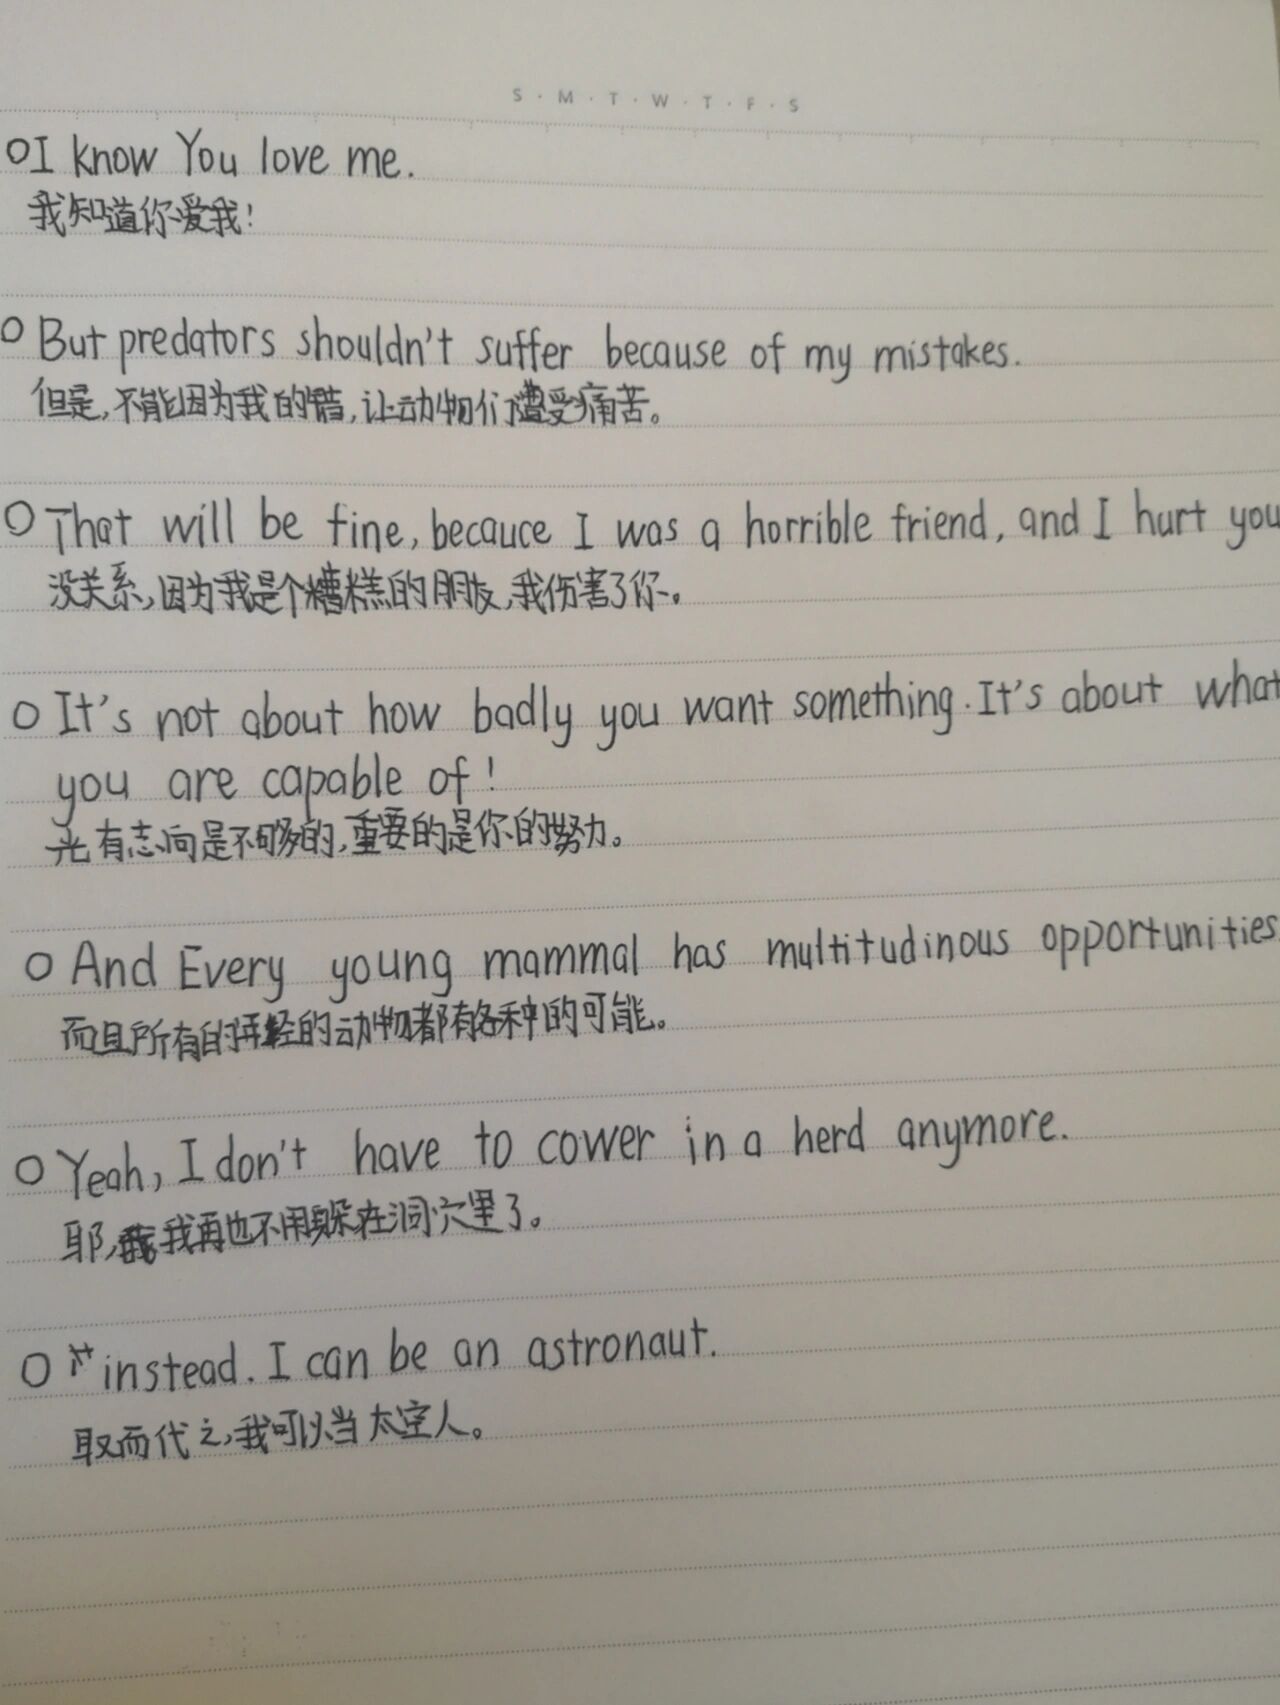 S · M · T · W · T · F · S
I know You love me.
我知道你爱我!
But predators shouldn't suffer because of my mistakes.
但是,不能因为我的错,让动物们遭受痛苦。
That will be fine, becauce I was a horrible friend, and I hurt you
没关系,因为我是个糟糕的朋友,我伤害了你。
It's not about how badly you want something. It's about what
you are capable of!
光有志向是不够的,重要的是你的努力。
And Every young mammal has multitudinous opportunities
而且所有的年轻的动物都有各种的可能。
Yeah, I don't have to cower in a herd anymore.
耶,我再也不用躲在洞穴里了。
instead. I can be an astronaut.
取而代之,我可以当太空人。